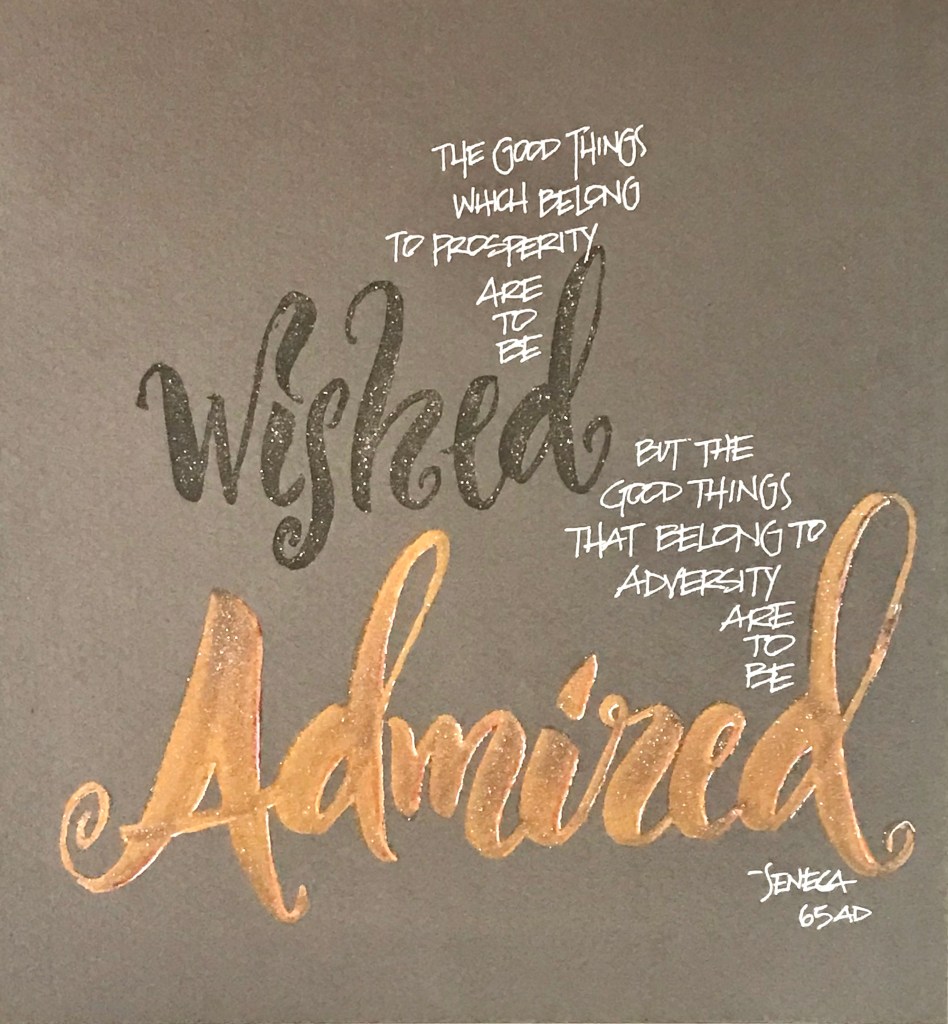 THE GOOD THINGS
WHICH BELONG
TO PROSPERITY
ARE
TO
BE
Wished
BUT THE
GOOD THINGS
THAT BELONG TO
ADVERSITY
ARE
TO
BE
Admired
-SENECA
65AD